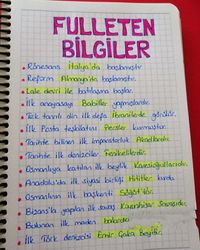 FULLETEN
BİLGİLER
Rönesans İtalya'da başlamıştır.
Reform Almanya'da başlamıştır.
Lale devri ile batılılaşma başlar.
İlk anayasayı Babiller yapmışlardır.
Tek tanrılı din ilk defa İbranilerde görülür.
İlk Posta teşkilatını Persler kurmuştur.
Tarihte bilinen ilk imparatorluk Akadlardır.
Tarihte ilk denizciler Fenikelilerdir.
Osmanlıya katılan ilk beylik Karesioğullarıdır.
Anadolu'da ilk siyasi birliği Hititler kurdu.
Osmanlının ilk başkenti Söğüt'tür.
Bizans'la yapılan ilk savaş Koyunhisar Savaşıdır.
Bulunan ilk maden bakırdır.
İlk Türk denizcisi Emir Çaka Bey'dir.